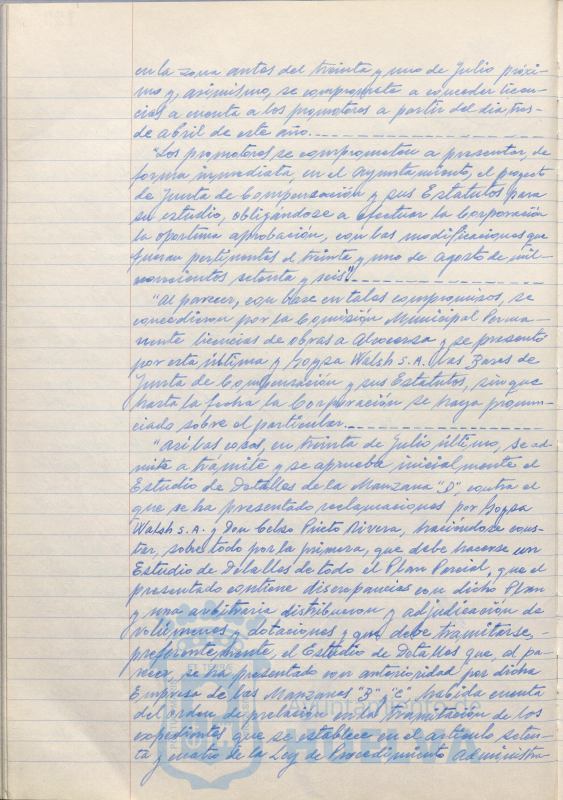 en la zona antes del treinta y uno de Julio próxi-
mo y, asimismo, se compromete a conceder licen-
cias a cuenta a los promotores a partir del dia tres
de abril de este año.
"Los promotores se comprometen a presentar, de
forma inmediata, en el Ayuntamiento, el proyecto
de Junta de Compensación y sus Estatutos para
su estudio, obligándose a efectuar la Corporación
la oportuna aprobación, con las modificaciones que
fueran pertinentes el treinta y uno de agosto de mil
novecientos setenta y seis".
"Al parecer, con base en tales compromisos, se
concedieron por la Comisión Municipal Perma-
nente licencias de obras a Alvocersa y se presentó
por esta última y Goysa Walsh S.A. las Bases de
Junta de Compensación y sus Estatutos, sin que
hasta la fecha la Corporación se haya pronun-
ciado sobre el particular.
"Asi las cosas, en treinta de Julio último, se ad-
mite a trámite y se aprueba inicialmente el
Estudio de Detalles de la Manzana "D", contra el
que se ha presentado reclamaciones por Goysa
Walsh S.A. y Don Celso Prieto Rivera, haciéndose cons-
tar, sobre todo por la primera, que debe hacerse un
Estudio de Detalles de todo el Plan Parcial, que el
presentado contiene discrepancias con dicho Plan
y una arbitraria distribucion y adjudicación de
volúmenes y dotaciones y que debe tramitarse,
preferentemente, el Estudio de Detalles que, al pa-
recer, se ha presentado con anterioridad por dicha
Empresa de las Manzanas "B" y "C" habida cuenta
del orden de prelación en la tramitación de los
expedientes que se establece en el articulo seten-
ta y cuatro de la Ley de Procedimiento Administra-
Ayuntamiento de
HUELVA